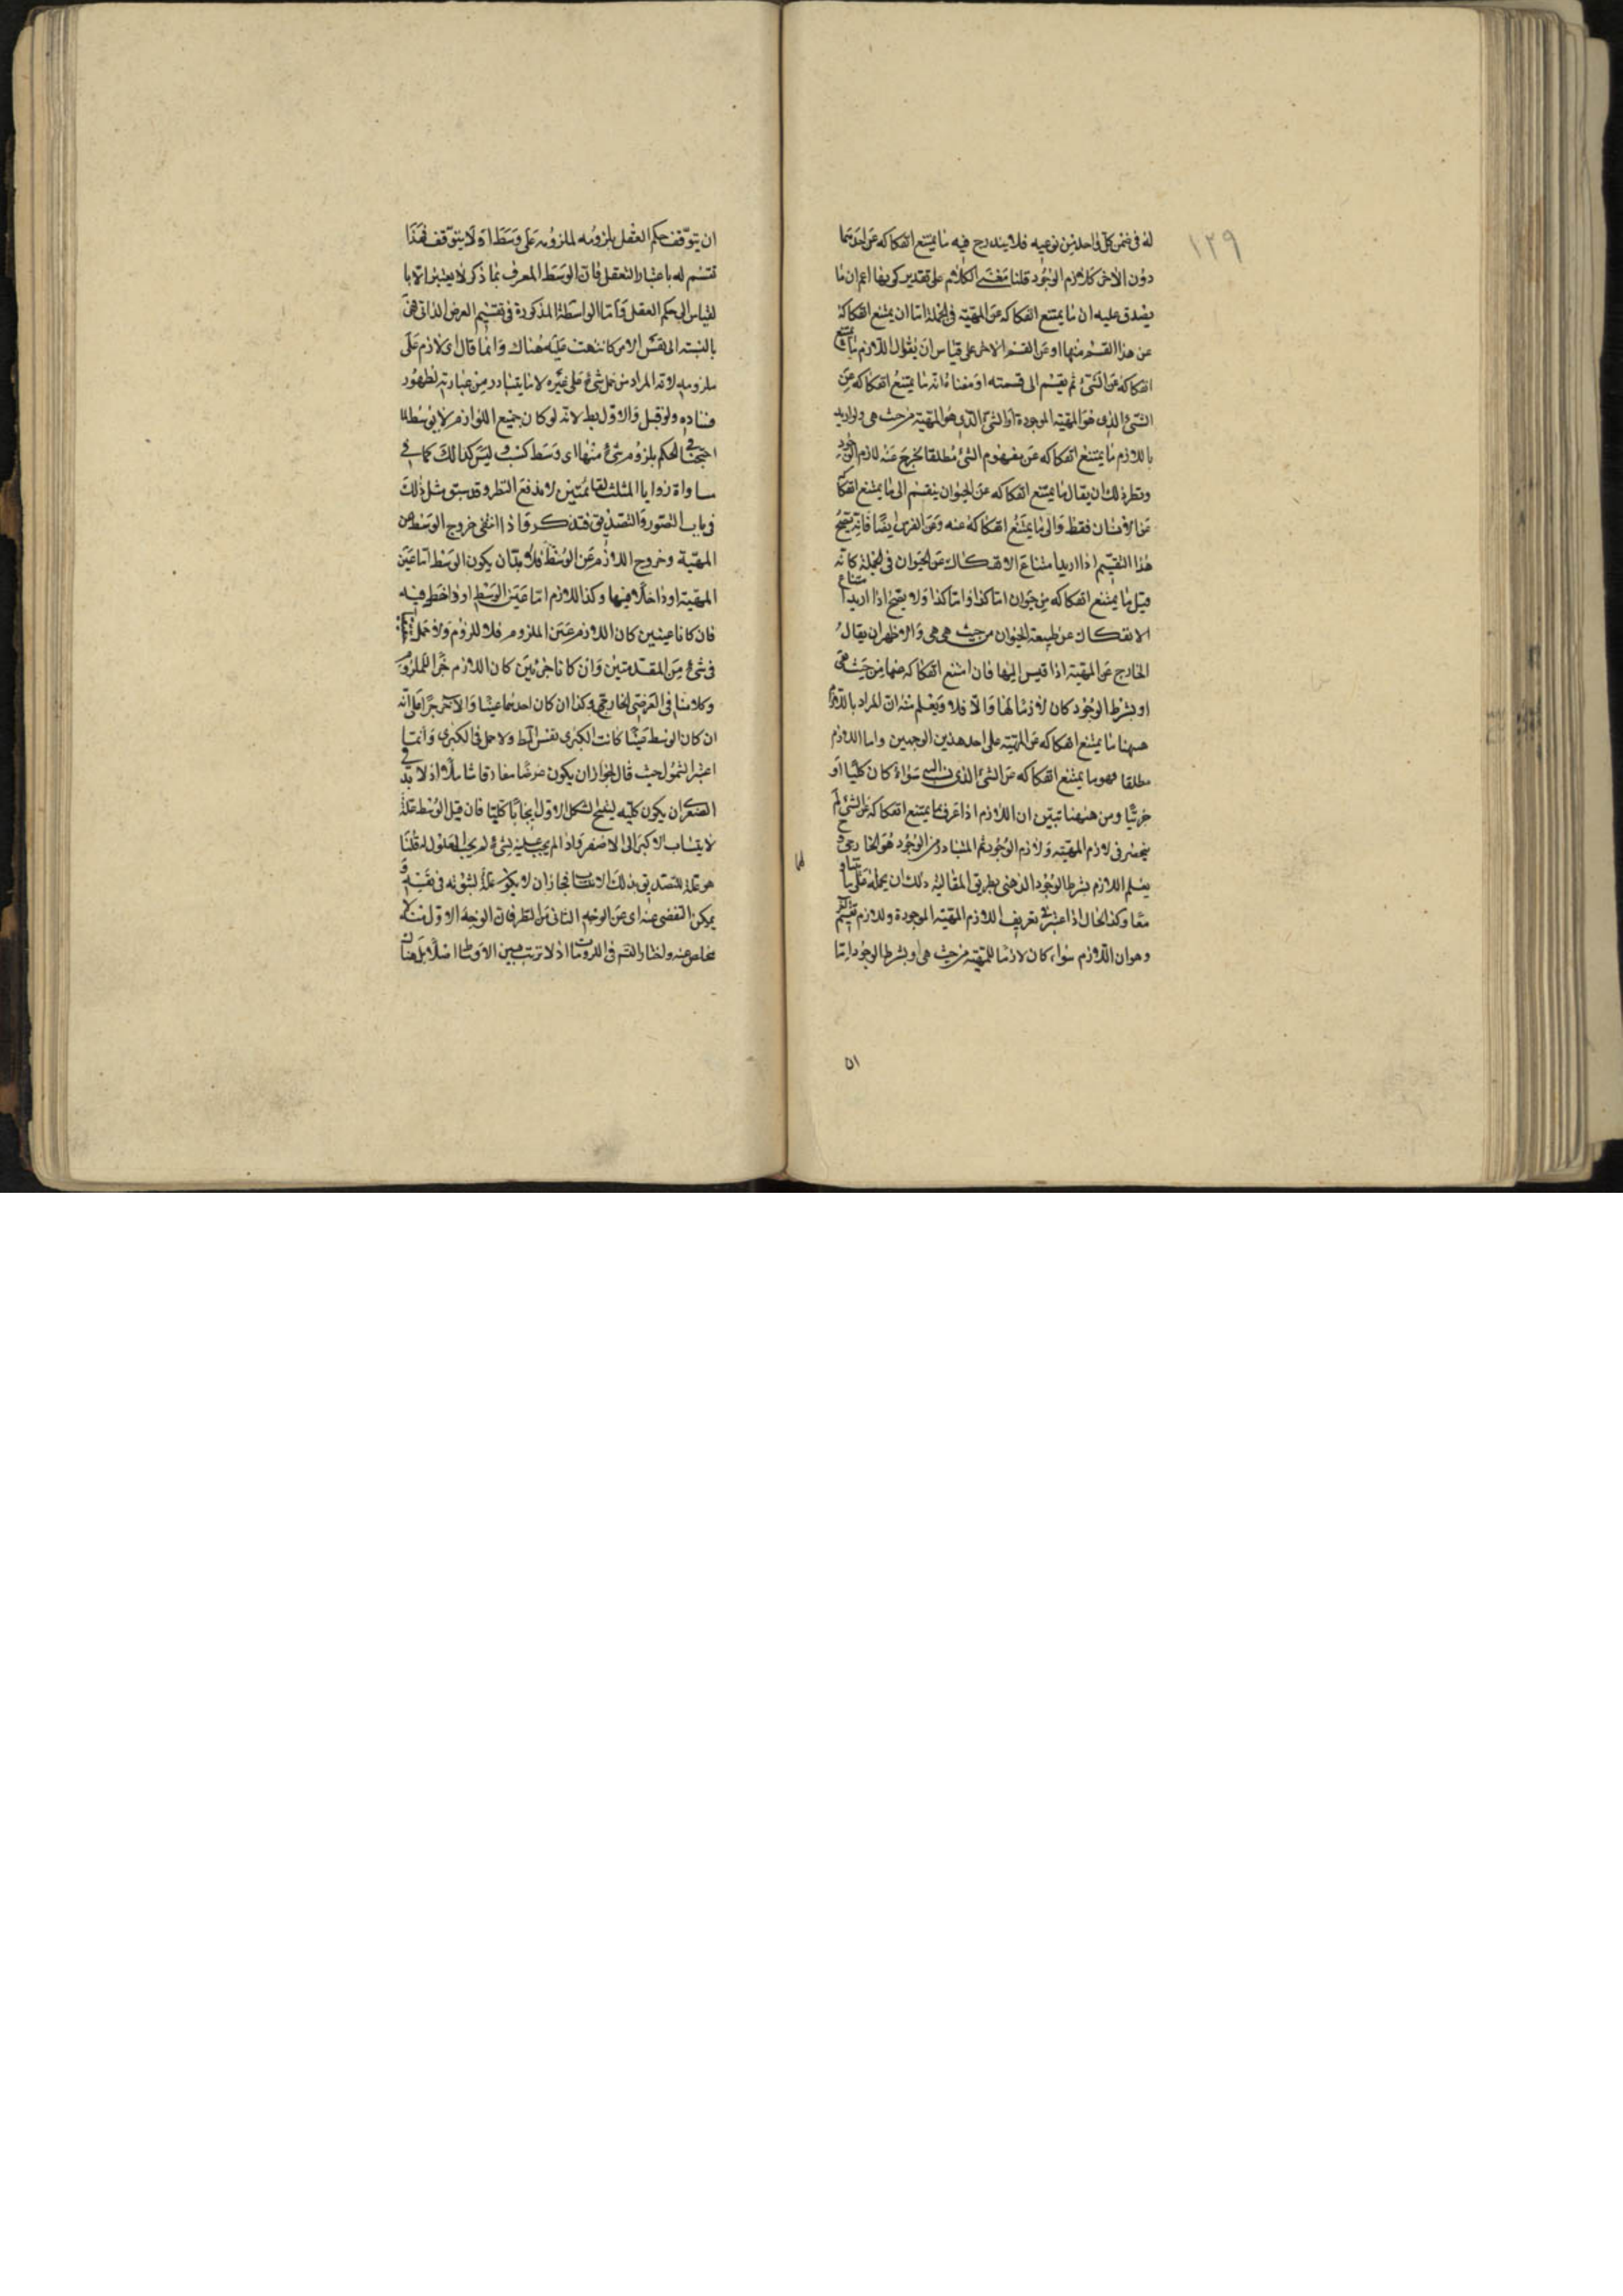 ١٢٩
له فى ضمن كل واحد من نوعيه فلا يندرج فيه ما يمتنع انفكاكه عن احدهما
دون الاخر كلازم الوجود قلنا معنى الكلام على تقدير كونها اعم ان ما
يصدق عليه ان ما يمتنع انفكاكه عن المهية فى الجملة اما ان يمتنع انفكاكه
عن هذا القسم منها او عن القسم الاخر على قياس ان يقول اللازم ما يمتنع
انفكاكه عن الشئ ثم يقسم الى قسمته او معناه انه ما يمتنع انفكاكه عن
الشئ الذى هو المهية الموجودة او الشئ الذى هو المهية من حيث هى ولو اريد
باللازم ما يمتنع انفكاكه عن مفهوم الشئ مطلقا يخرج عنه لازم الوجود
ونظير ذلك ان يقال ما يمتنع انفكاكه عن الحيوان ينقسم الى ما يمتنع انفكا
عن الانسان فقط والى ما يمتنع انفكاكه عنه وعن الفرس ايضا فانه يصح
هذا التقسيم اذا اريد امتناع الانفكاك عن الحيوان فى الجملة كانه
قيل ما يمتنع انفكاكه من حيوان اما كذا واما كذا ولا يصح اذا اريد امتناع
الانفكاك عن طبيعة الحيوان من حيث هى هى والاظهر ان يقال
الخارج عن المهية اذا قيس اليها فان امتنع انفكاكه عنها من حيث هى
او بشرط الوجود كان لازما لها والا فلا ويعلم منه ان المراد باللازم
ههنا ما يمتنع انفكاكه عن المهية على احد هذين الوجهين واما اللازم
مطلقا فهو ما يمتنع انفكاكه عن الشئ الذى سواء كان كليا او
جزئيا ومن ههنا تبين ان اللازم اذا عرف بما يمتنع انفكاكه عن الشئ لم
ينحصر فى لازم المهية ولازم الوجود ثم المتبادر من الوجود هو الخارجى و
يعلم اللازم بشرط الوجود الذهنى بطريق المقايسة ولك ان يحمله على ما يتناو
معا وكذا الحال اذا اعتبر فى تعريف اللازم المهية الموجودة ولازم تقسيم
وهو ان اللازم سواء كان لازما للمهية من حيث هى او بشرط الوجود اما
٥١
ان يتوقف حكم العقل بلزومه لملزومه على وسط او لا يتوقف فهذا
تقسيم له باعتبار التعقل فان الوسط المعرف بما ذكر لا يعتبر الا با
لقياس الى حكم العقل واما الواسطة المذكورة فى تقسيم العرض الذاتى فهى
بالنسبة الى نفس الامر كما نبهت عليه هناك وانما قال اى لازم على
ملزومه لانه المراد من حمل شئ على غيره لا ما يتبادر من عبارته لظهور
فساده ولو قيل والاول بط لانه لو كان جميع اللوازم لا بوسط لما
احتجنا فى الحكم بلزوم شئ منها اى وسط كسب وليس كذلك كما فى
مساواة زوايا المثلث لقائمتين لاندفع النظر وقد سبق مثل ذلك
فى باب التصور والتصديق فتذكر واذا انتفى خروج الوسط عن
المهية وخروج اللازم عن الوسط فلا بد ان يكون الوسط اما عين
المهية او داخلا فيها وكذا اللازم اما عين الوسط او داخل فيه
فان كانا عينين كان اللازم عين الملزوم فلا لزوم ولا حمل
فى شئ من المقدمتين وان كانا جزئين كان اللازم جزأ للملزوم
وكلامنا فى العرضى الخارجى وكذا ان كان احدهما عينا والاخر جزأ على انه
ان كان الوسط عينا كانت الكبرى نفس المط ولا حمل فى الكبرى وانما
اعتبر الشمول حيث قال لجواز ان يكون عرضا مفارقا شاملا اذ لا بد فى
الصغرى ان يكون كلية لينتج الشكل الاول ايجابا كليا فان قيل الوسط علة
لانتساب الاكبر الى الاصغر واذا لم يجب علية لشئ لم يجب المعلول له قلنا
هو علة للتصديق بذلك الانتساب فجاز ان لا يكون علة لثبوته فى نفسه و
يمكن التفصى عنه اى عن الوجه الثانى من النظر فان الوجه الاول لا
مخلص عنه ولنختار القسم فى اللزومات اذ لا ترتب بين الاوساط اصلا بل هناك